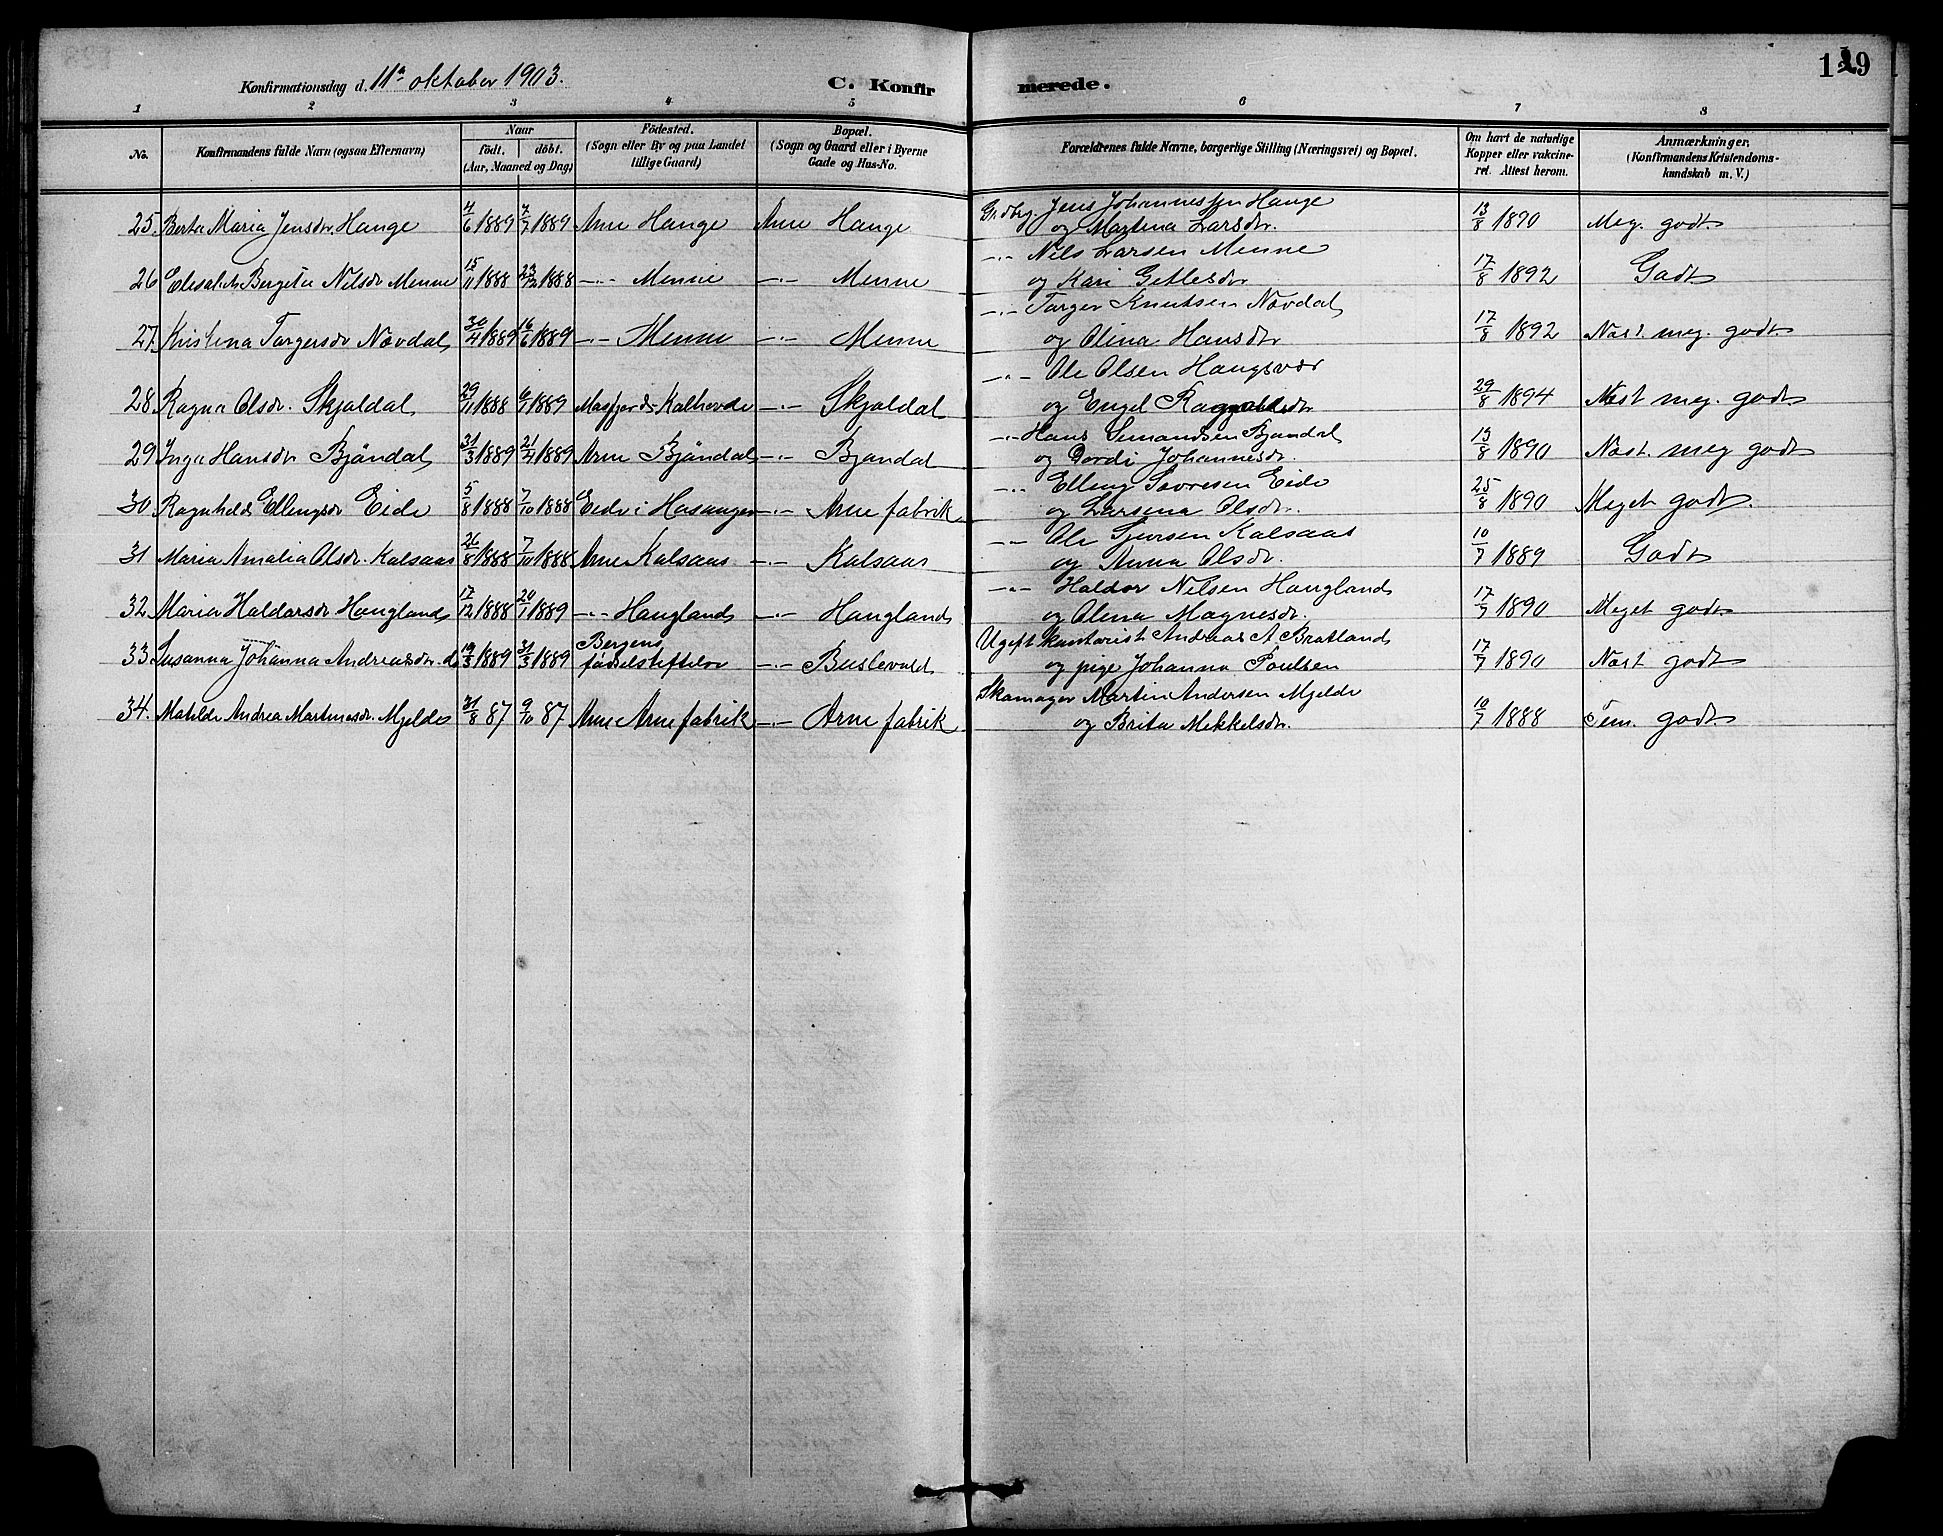 Konfirmationsdag d. 11te oktober 1903. C. Konfirmerede. 129
1 2 3 4 5 6 7 8
No. Konfirmandens fulde Navn (ogsaa Efternavn) Naar født. døbt. (Aar, Maaned og Dag) Födested. (Sogn eller By og paa Landet tillige Gaard) Bopæl. (Sogn og Gaard eller i Byerne Gade og Hus-No. Forældrenes fulde Navne, borgerlige Stilling (Næringsvei) og Bopæl. Om havt de naturlige Kopper eller vakcineret. Attest herom. Anmærkninger, (Konfirmandens Kristendomskundskab m. V.)
25. Berta Maria Jensdr. Hauge 4/6 1889 7/7 1889 Arne Hauge Arne Hauge Grdbrg. Jens Johannessen Hauge
og Martina Larsdr. 13/8 1890 Meg. godt
26 Elisabeth Bergeta Nilsdr Menne 15/11 1888 23/12 1888 -"- Menne -"- Menne -"- Nils Larsen Menne
og Kari Getlesdr 17/8 1892 Godt
27. Kristena Torgersdr Novdal 30/4 1889 16/6 1889 -"- Menne -"- Menne -"- Torger Knutsen Novdal
og Olina Hansdr 17/8 1892 Næst meg. godt
28. Ragna Olsdr. Skjoldal 29/11 1888 6/1 1889 Masfjord Kalhovde -"- Skjoldal -"- Ole Olsen Haugsvær
og Engel Ragnvaldsdr 29/8 1894 Næst meg. godt
29 Inga Hansdr Bjöndal 31/3 1889 21/4 1889 Arne Bjöndal -"- Bjöndal -"- Hans Simondsen Bjondal
og Dordi Johannesdr. 13/8 1890 Næst. meg godt
30. Ragnhild Ellingsdr Eide 5/8 1888 7/10 1888 Eide i Hosanger -"- Arne fabrik -"- Elling Sovresen Eide
og Larsena Olsdr. 25/8 1890 Meget godt.
31 Maria Amalia Olsdr. Kalsaas 26/8 1888 7/10 1888 Arne Kalsaas -"- Kalsaas -"- Ole Sjursen Kalsaas
og Anna Olsdr. 10/7 1889 Godt
32. Maria Haldorsdr Haugland 17/12 1888 20/1 1889 -"- Haugland -"- Haugland -"- Haldor Nilsen Haugland
og Olena Magnesdr. 17/7 1890 Meget godt
33. Susanna Johanna Andreasdr. 19/3 1889 31/3 1889 Bergens födselstiftelse -"- Ugift kontorist Andreas A Bratland
og pige Johanna Poulsen 17/7 1890 Næst godt
34. Matilde Andrea Martinesdr. Mjelde 31/8 87 9/10 87 Arne Arne fabrik -"- Arne fabrik Skomager Martin Andersen Mjelde
og Brita Mikkelsdr. 10/7 1888 Tem. godt